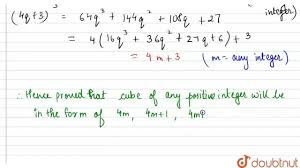 integer)
(4q+3)³ = 64q³ + 144q² + 108q + 27
= 4(16q³ + 36q² + 27q + 6) + 3
= 4m+3 (m = any integer)
∴ Hence proved that cube of any positive integer will be
in the form of 4m, 4m+1, 4m
doubtnut